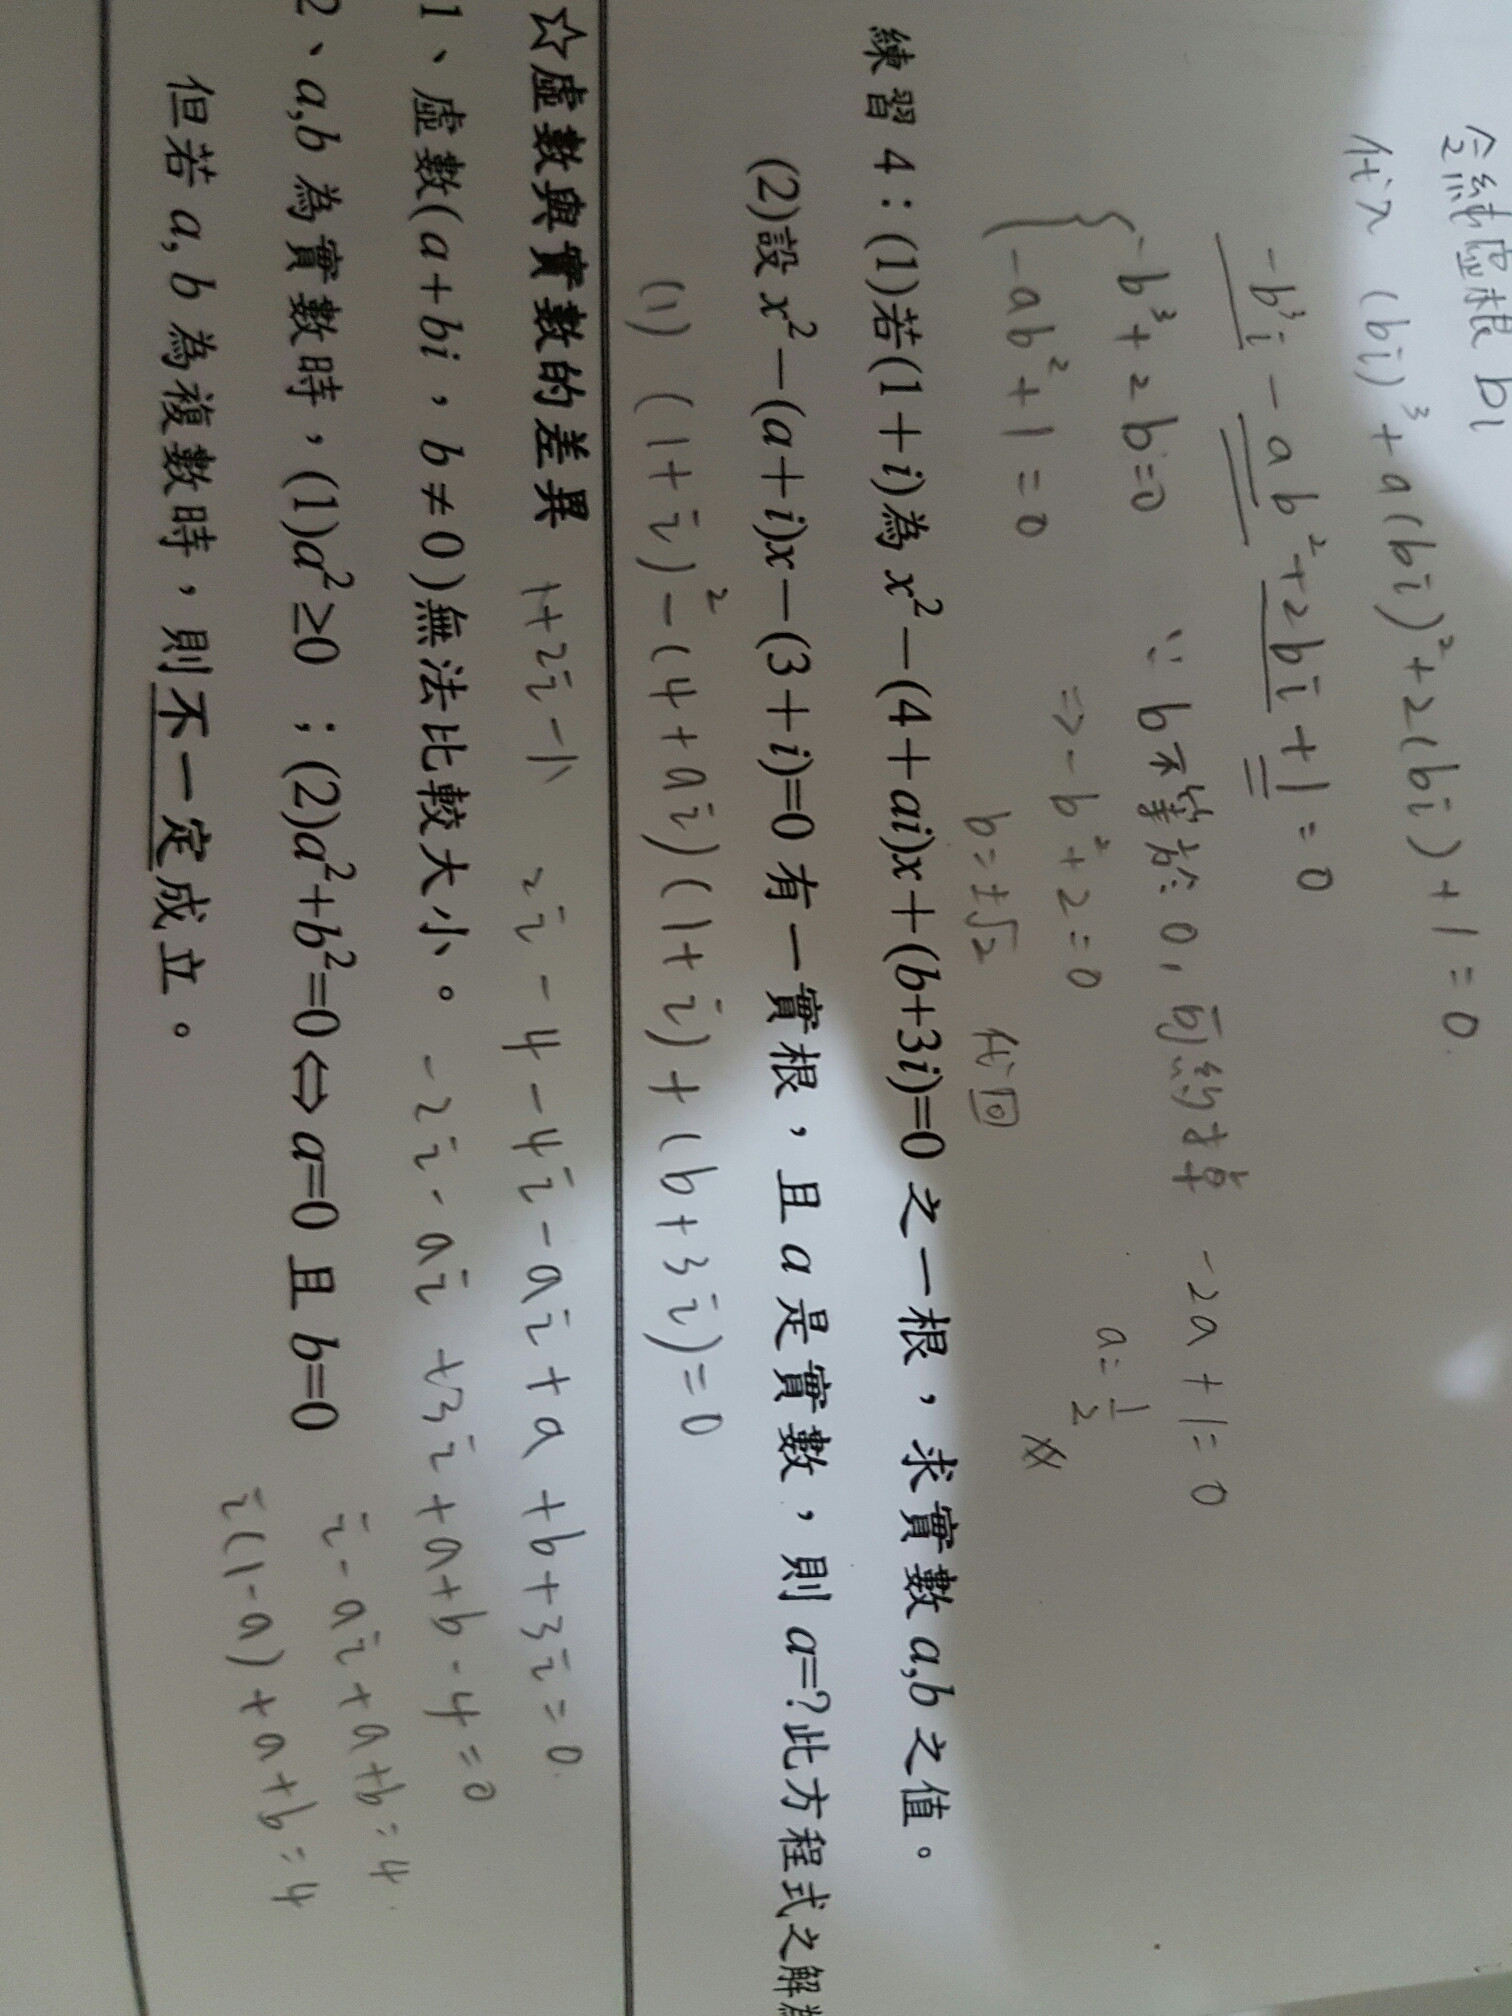 令純虛根 bi
代入 (bi)³+a(bi)²+2(bi)+1=0.
-b³i-ab²+2bi+1=0
{-b³+2b=0 ∵b不等於0,可約掉 -2a+1=0
-ab²+1=0 ⇒-b²+2=0 a=1/2
b=±√2 代回
練習 4：(1)若(1+i)為 x²-(4+ai)x+(b+3i)=0 之一根，求實數 a,b 之值。
(2)設 x²-(a+i)x-(3+i)=0 有一實根，且 a 是實數，則 a=?此方程式之解
(1) (1+i)²-(4+ai)(1+i)+(b+3i)=0
☆虛數與實數的差異 1+2i-1 2i-4-4i-ai+a+b+3i=0.
1、虛數(a+bi，b≠0)無法比較大小。 -2i-ai+3i+a+b-4=0
2、a,b 為實數時，(1)a²≥0 ；(2)a²+b²=0⇔a=0 且 b=0 i-ai+a+b=4.
但若 a, b 為複數時，則不一定成立。 i(1-a)+a+b=4